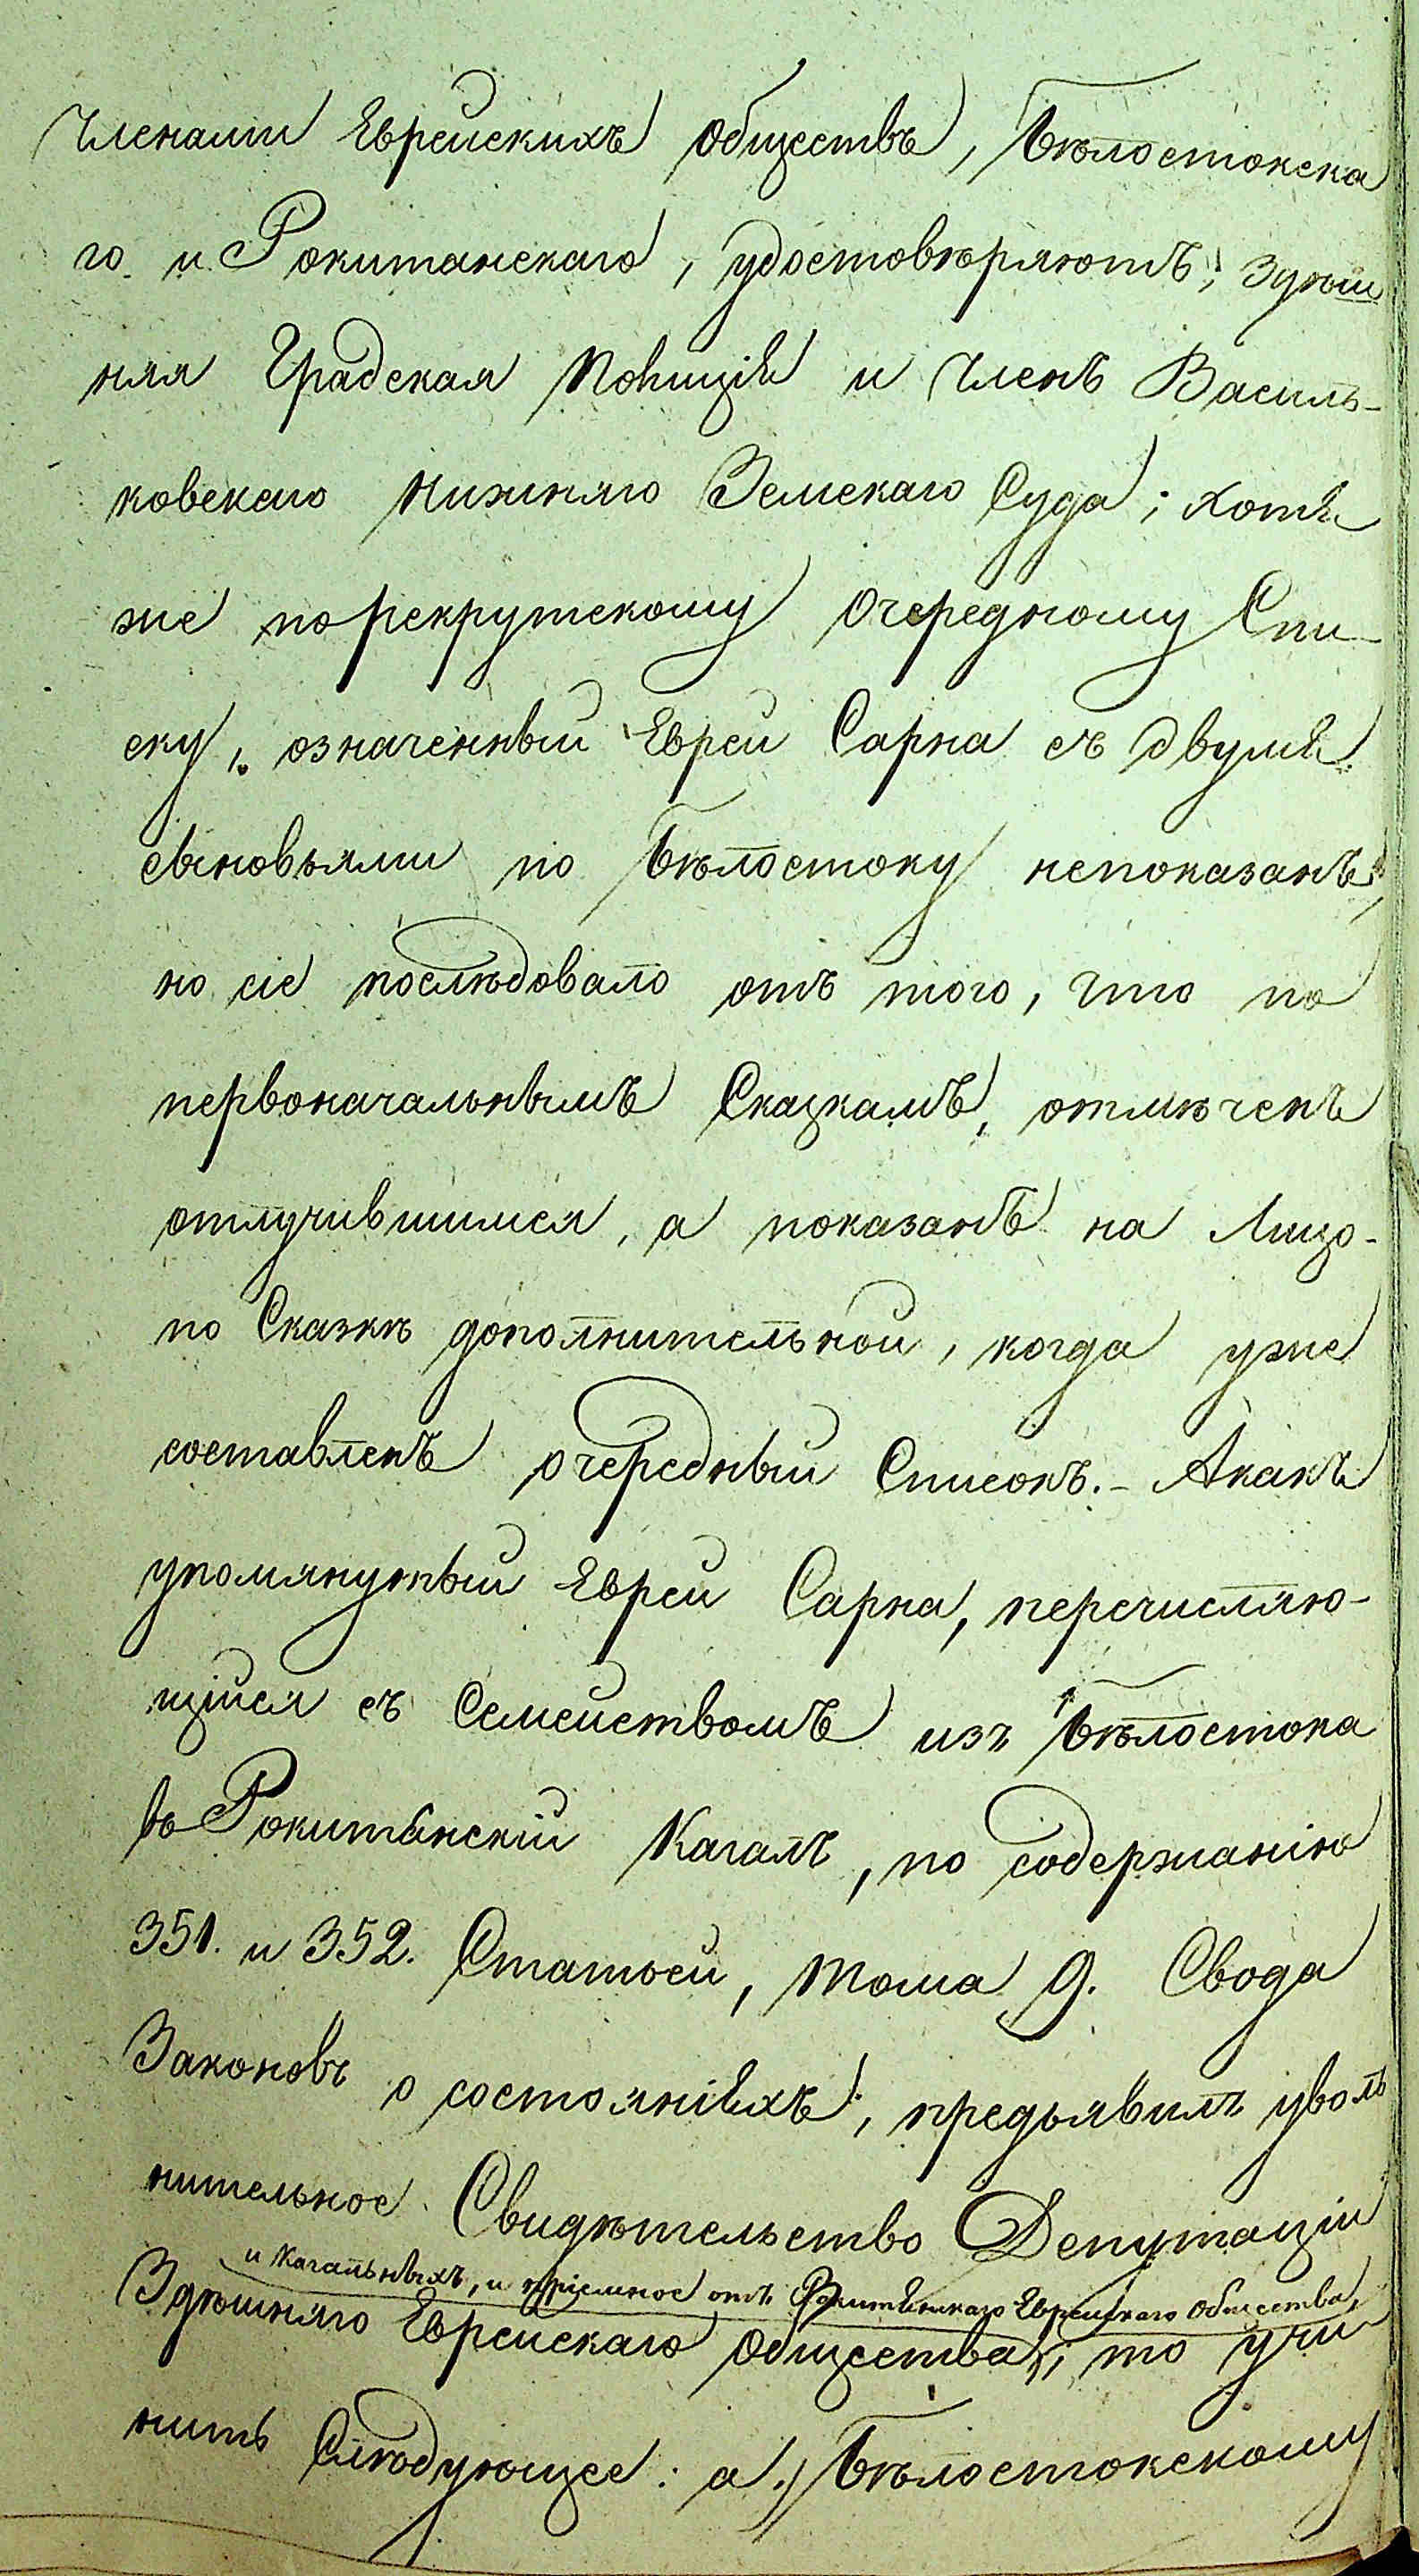 Членами Еврейскихъ Обществъ, Бѣлостокска
го и Рокитанскаго, удостовѣряютъ; Здѣш
няя Градская Полиція и Членъ Василь-
ковскаго Нижняго Земскаго Суда; хотя
же по рекрутскому Очередному Спи-
ску, означенный Еврей Сарна съ двумя
сыновьями по Бѣлостоку непоказанъ,
но сіе послѣдовало отъ того, что по
первоначальнымъ Сказкамъ, отмѣченъ
отлучившимся, а показанъ на Лицо-
по Сказкѣ дополнительной, когда уже
составленъ очередный Списокъ.- Акакъ
упомянутый Еврей Сарна, перечисляю-
щійся съ Семействомъ изъ Бѣлостока
въ Рокитанскій Кагалъ, по содержанію
351. и 352. Статьей, тома 9. Свода
Законовъ о состояніяхъ, предъявилъ уволь
нительное Свидѣтельство Депутаціи
и Кагальныхъ, и пріемное отъ Рокитянскаго Еврейскаго Общества,
Здѣшняго Еврейскаго Общества; то учи
нить Слѣдующее: а.) Бѣлостокскому